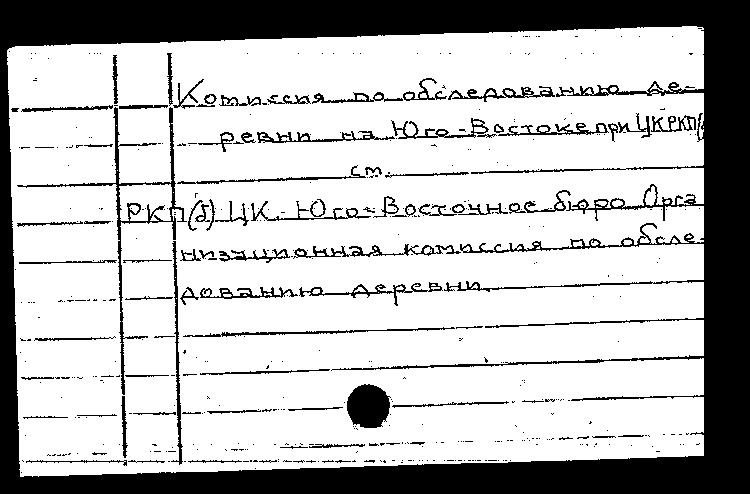 Комиссия по обследованию де-
ревни на Юго-Востоке при ЦК РКП(б
см.
РКП(б) ЦК. Юго-Восточное бюро Орга
низационная комиссия по обсле-
дованию деревни.